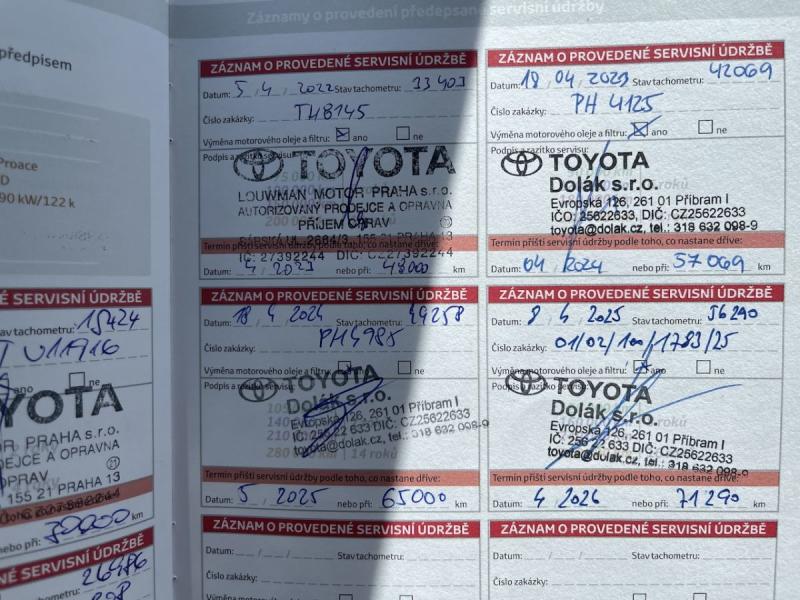 Záznamy o provedení předepsané servisní údržby
předpisem
Proace
D
90 kW/122 k
SERVISNÍ ÚDRŽBĚ
Stav tachometru: 15424
U11916
ano ne
TOYOTA
PRAHA s.r.o.
PRODEJCE A OPRAVNA
155 21 PRAHA 13
nebo při: 30000 km
SERVISNÍ ÚDRŽBĚ
26486
ZÁZNAM O PROVEDENÉ SERVISNÍ ÚDRŽBĚ
Datum: 5. 4. 2022 Stav tachometru: 33403
Číslo zakázky: TH8145
Výměna motorového oleje a filtru: ano ne
Podpis a razítko servisu:
TOYOTA
LOUWMAN MOTOR PRAHA s.r.o.
AUTORIZOVANÝ PRODEJCE A OPRAVNA
PŘÍJEM OPRAV
155 21 PRAHA 13
Termín příští servisní údržby podle toho, co nastane dříve:
IČ: 27392244 DIČ: CZ27392244
4 2023 nebo při: 48000 km
ZÁZNAM O PROVEDENÉ SERVISNÍ ÚDRŽBĚ
Datum: 18. 04. 2023 Stav tachometru: 42069
Číslo zakázky: PH 4125
Výměna motorového oleje a filtru: ano ne
Podpis a razítko servisu:
TOYOTA
Dolák s.r.o.
Evropská 126, 261 01 Příbram I
IČO: 25622633, DIČ: CZ25622633
toyota@dolak.cz, tel.: 318 632 098-9
Termín příští servisní údržby podle toho, co nastane dříve:
Datum: 04. 2024 nebo při: 57069 km
ZÁZNAM O PROVEDENÉ SERVISNÍ ÚDRŽBĚ
Datum: 18. 4. 2024 Stav tachometru: 49258
Číslo zakázky: PH4985
Výměna motorového oleje a filtru: ano ne
Podpis a
TOYOTA
Dolák s.r.o.
Evropská 126, 261 01 Příbram I
IČ: 256 22 633 DIČ: CZ25622633
toyota@dolak.cz, tel.: 318 632 098-9
280 000 km | 14 roků
Termín příští servisní údržby podle toho, co nastane dříve:
Datum: 5. 2025 nebo při: 65000 km
ZÁZNAM O PROVEDENÉ SERVISNÍ ÚDRŽBĚ
Datum: 8. 4. 2025 Stav tachometru: 56290
Číslo zakázky: 01/02/100/1783/25
Výměna motorového oleje a filtru: ano ne
Podpis a
TOYOTA
Dolák s.r.o.
Evropská 126, 261 01 Příbram I
IČ: 256 22 633 DIČ: CZ25622633
toyota@dolak.cz, tel.: 318 632 098-9
Termín příští servisní údržby podle toho, co nastane dříve:
Datum: 4. 2026 nebo při: 71290 km
ZÁZNAM O PROVEDENÉ SERVISNÍ ÚDRŽBĚ
Datum: Stav tachometru:
Číslo zakázky:
Výměna motorového oleje a filtru: ano ne
ZÁZNAM O PROVEDENÉ SERVISNÍ ÚDRŽBĚ
Datum: Stav tachometru:
Číslo zakázky:
Výměna motorového oleje a filtru: ano ne